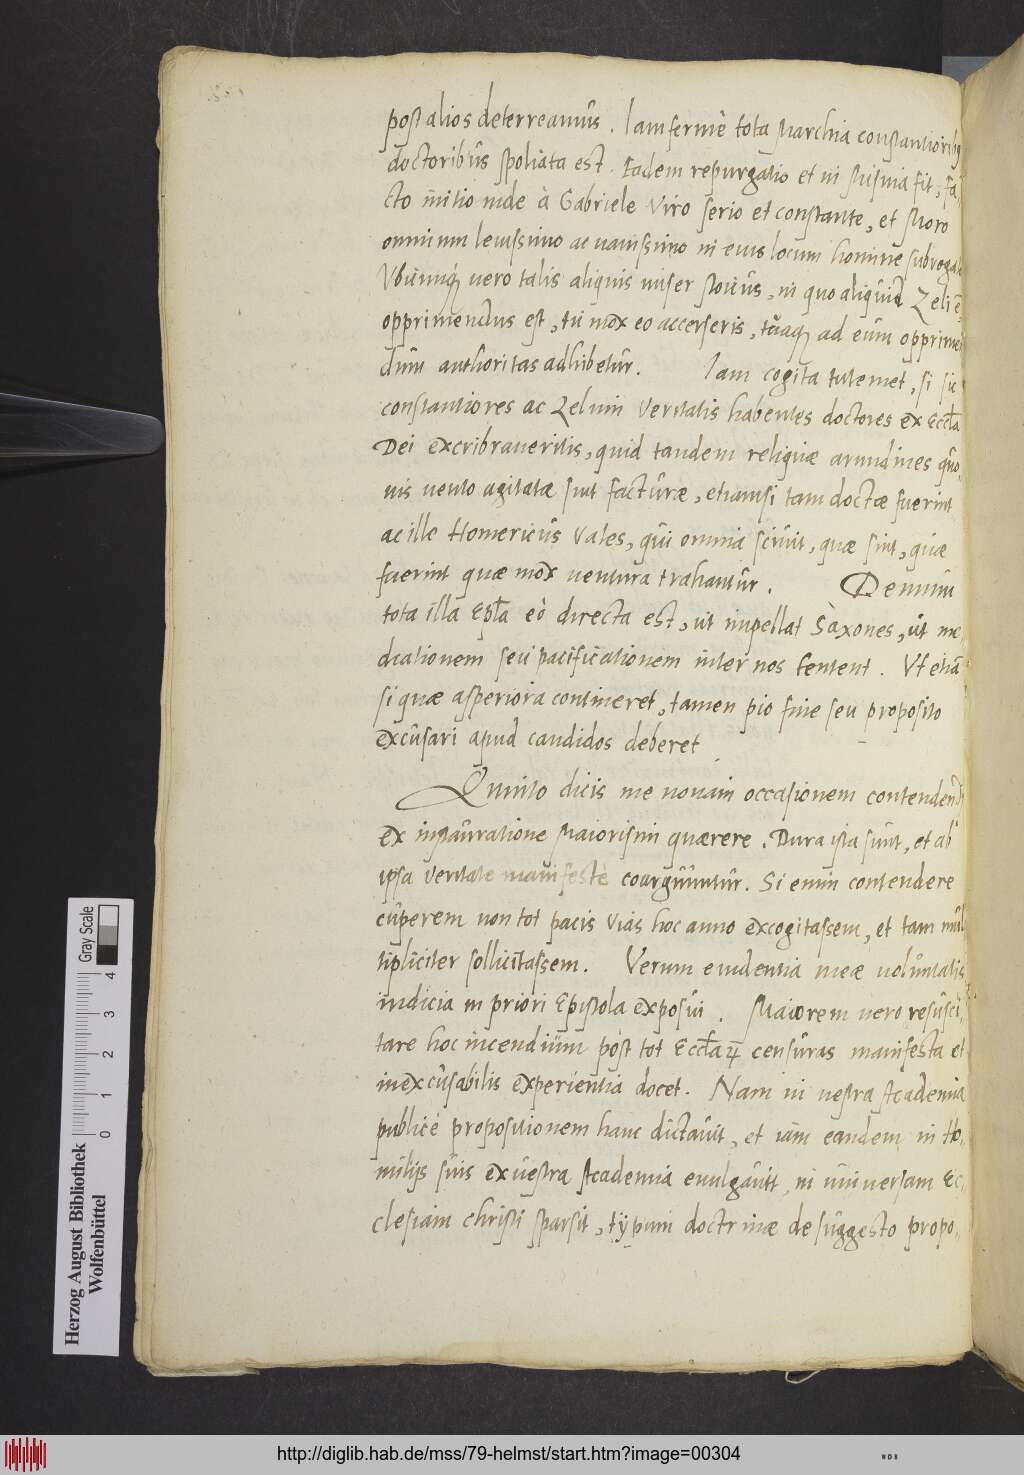 post alios deterreamus. Iam fermè tota Marchia constantioribq
doctoribus spoliata est. Eadem repurgatio et in Misnia fit, fa-
cto initio inde à Gabriele viro serio et constante, et Moro
omnium levissimo ac vanissimo in eius locum homine subrogat
Vbicunq vero talis aliquis miser Stoicus, in quo aliquid Zeli ē
opprimendus est, tu mox eo accerseris, tuaq ad eum opprimen
dum authoritas adhibetur. Iam cogita tutemet, si sic
constantiores ac Zelum Veritatis habentes doctores ex Eccla
Dei excribraveritis, quid tandem reliquæ arundines quo
uis uento agitatæ sint facturæ, etiamsi tam doctæ fuerint
ac ille Homericus Vates, qui omnia scivit, quæ sint, quæ
fuerint quæ mox uentura trahantur. Denium
tota illa Epla eò directa est, ut impellat Saxones, ut me
diationem seu pacificationem inter nos tentent. Vt etiā
si quæ asperiora contineret, tamen pio fine seu proposito
excusari apud candidos deberet
Quinto dicis me nouam occasionem contendendi
ex instauratione Maiorismi quærere. Dura ista sunt, et ab
ipsa veritate manifestè coarguuntur. Si enim contendere
cuperem non tot pacis vias hoc anno excogitassem, et tam mul
tipliciter sollicitassem. Verum euidentia meæ uoluntatis
indicia in priori Epistola exposui. Maiorem uero resusci-
tare hoc incendium post tot Ecclaꝝ censuras manifesta et
inexcusabilis experientia docet. Nam in uestra Academia
publicè propositionem hanc dictauit, et iam eandem in Ho-
milijs suis ex uestra Academia euulgauit, in uniuersam Ec-
clesiam christi sparsit, tÿpum doctrinæ de suggesto propo-
Herzog August Bibliothek
Wolfenbüttel
0 1 2 3 4 Gray Scale
http://diglib.hab.de/mss/79-helmst/start.htm?image=00304
WDB